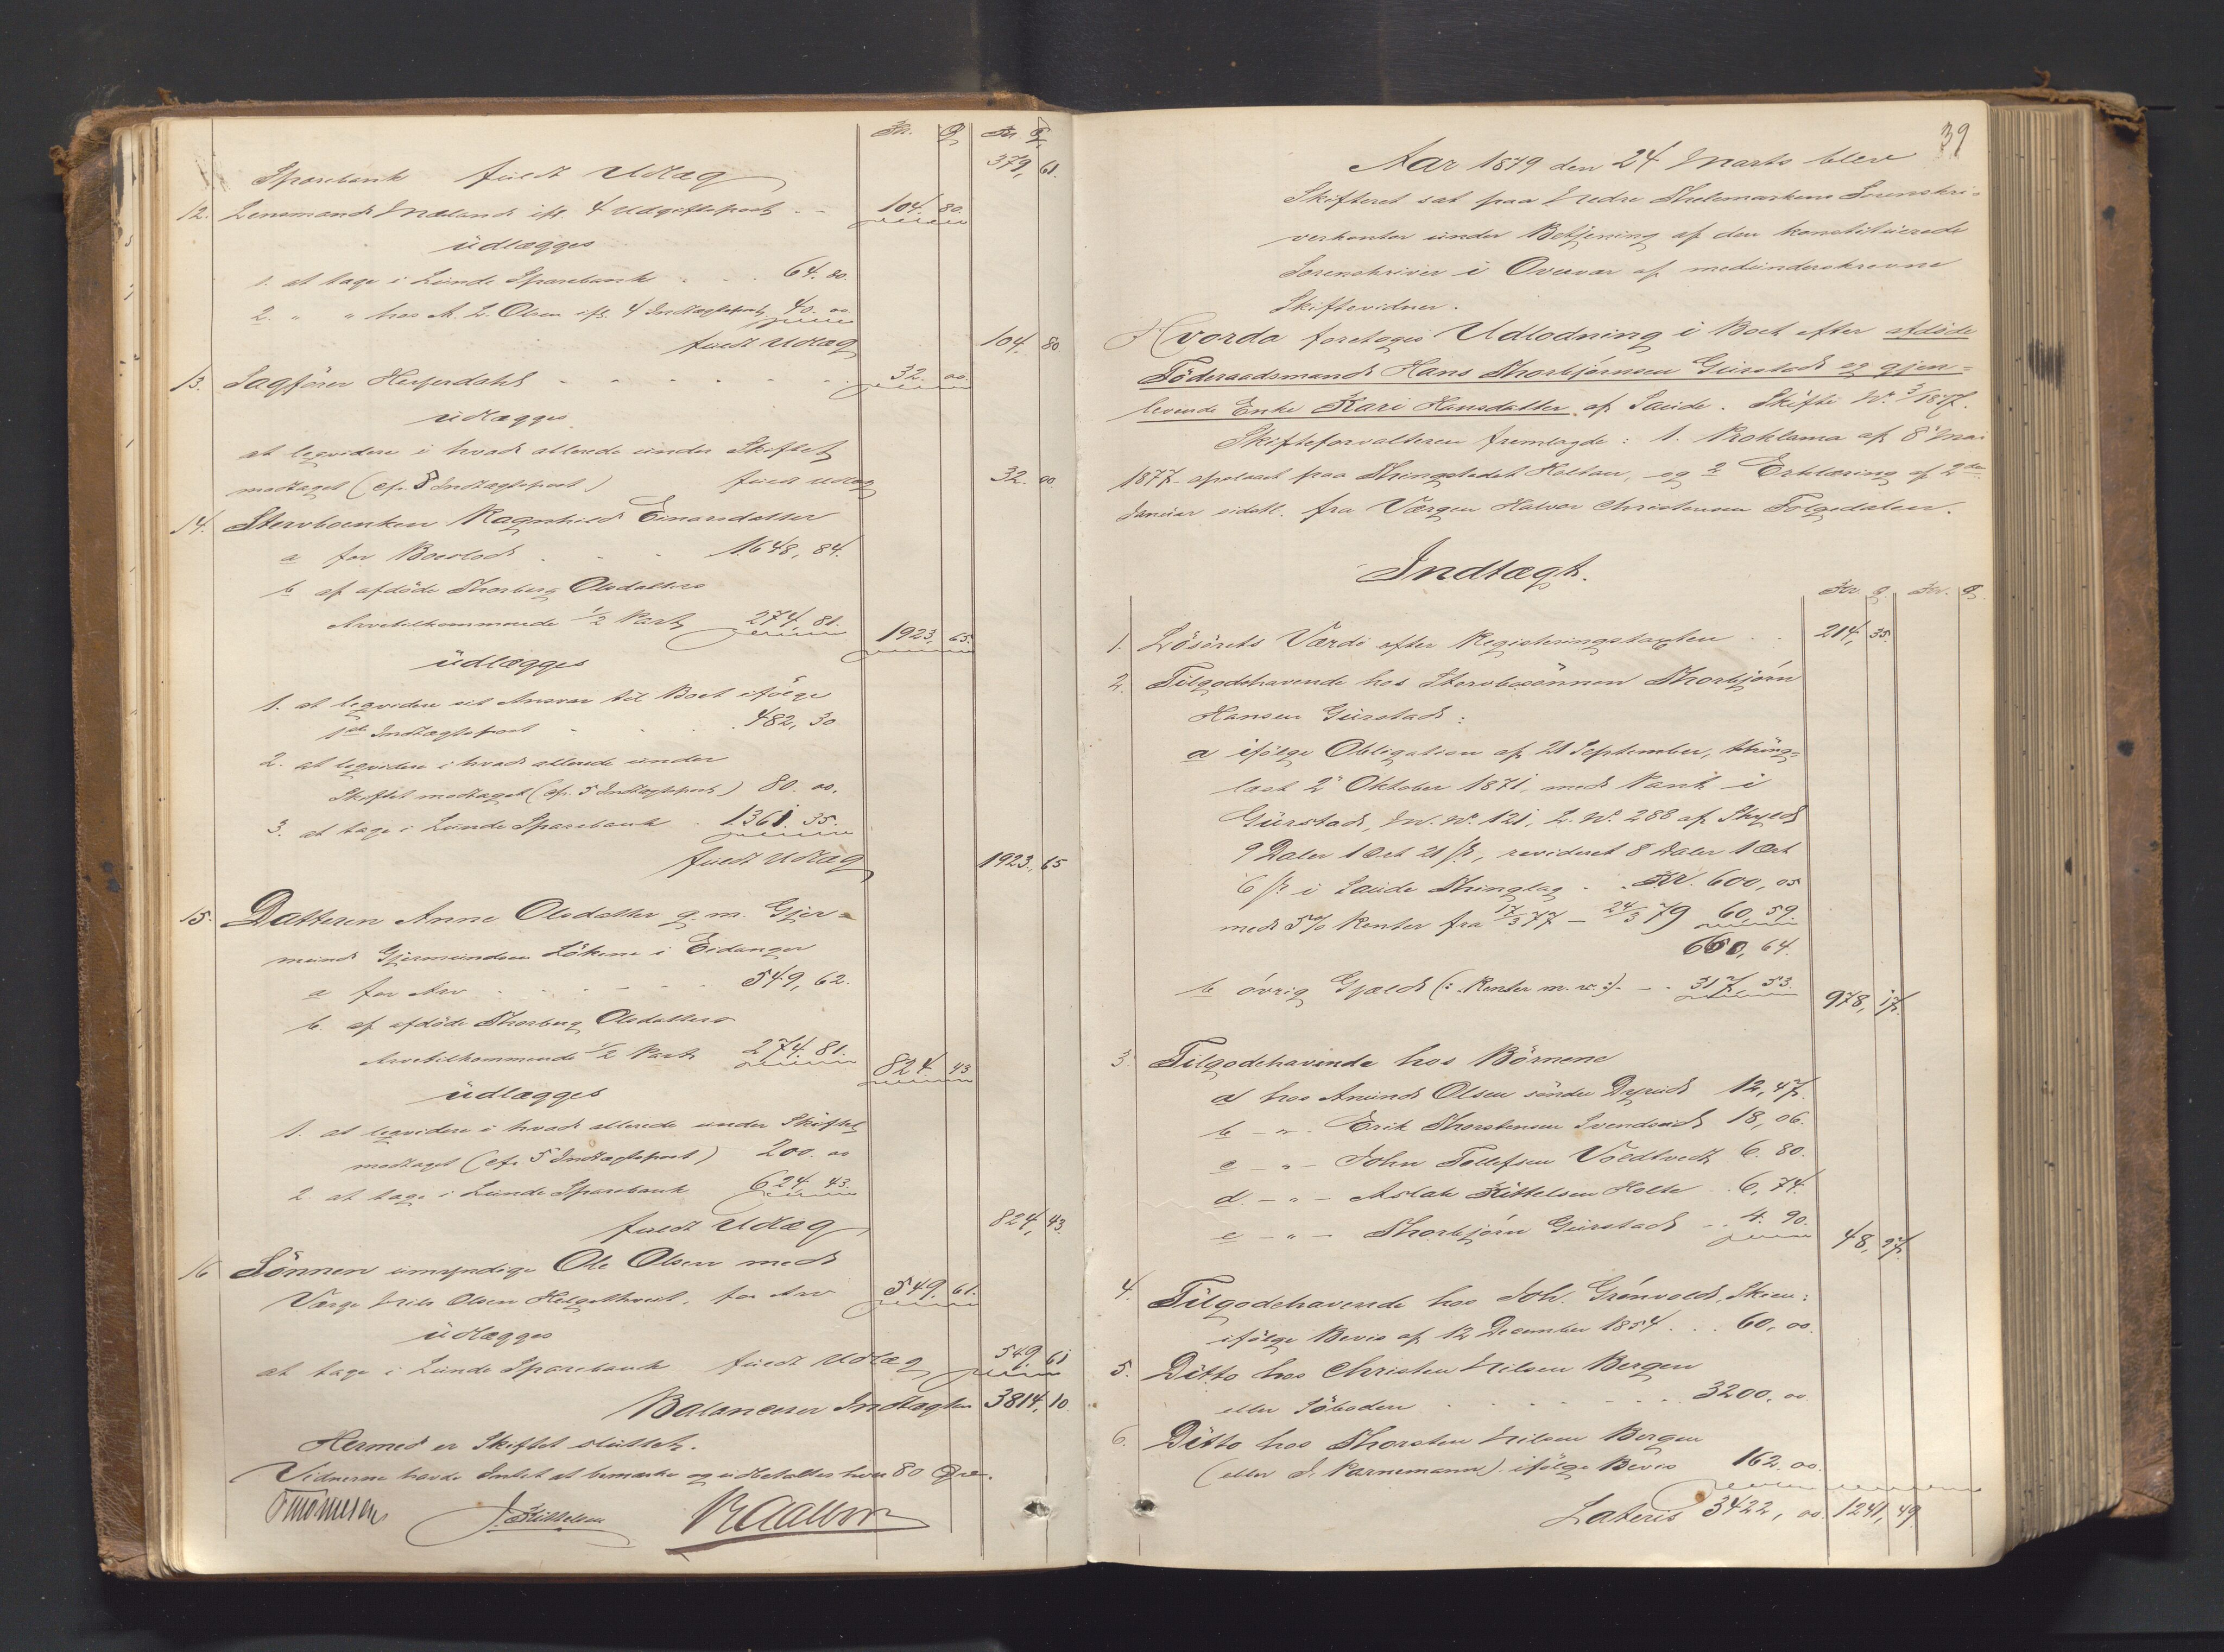 Kr. Ø Kr Ø
Sparebank fuldt Udlæg 379, 61.
12. Lensmand Næland ifl. 4 Udgiftspost - - 104. 80.
udlægges
1. at tage i Lunde Sparebank . . 64. 80.
2. " " hos A. L. Olsen ifl. 4 Indtægtspost 40. 00
fuldt Udlæg 104. 80.
13. Sagfører Heyerdahl - - - - - 32. 00.
udlægges
at leqvidere i hvad allerede under Skiftet
modtaget (cfr. 5 Indtægtspost) fuldt Udlæg 32. 00
14. Stervboenken Ragnhild Einarsdatter
a for Boeslod . - - 1648, 84.
b af afdöde Thorberg Olsdatters
Arvetilkommende 1/2 Part 274, 81. 1923, 65.
udlægges
1. at leqvidere sit Ansvar til Boet ifölge
1ste Indtægtspost - - . 482, 30
2. at leqvidere i hvad allerede under
Skiftet modtaget (cfr. 5 Indtægtspost) 80. 00.
3. at tage i Lunde Sparebank . 1361. 35.
fuldt Udlæg 1923, 65
15. Datteren Anne Olsdatter g. m. Gjer-
mund Gjermundsen Lökene i Eidanger
a for Arv . - - - - 549, 62.
b. af afdöde Thorberg Olsdatters
Arvetilkommende 1/2 Part 274. 81. 824. 43
udlægges
1. at leqvidere i hvad allerede under Skiftet
modtaget (cfr 5 Indtægtspost) 200. 00
2. at tage i Lunde Sparebank 624, 43.
fuldt Udlæg 824, 43.
16 Sönnen umyndige Ole Olsen med
Værge Nils Olsen Helgethveit, for Arv 549. 61.
udlægges
at tage i Lunde Sparebank fuldt Udlæg 549, 61
Balancerer Indtægten 3814, 10.
Hermed er Skiftet sluttet.
Vidnerne havde Intet at bemærke og udbetaltes hver 80 Øre.
J. Kittelsen
39
Aar 1879 den 24 Marts blev
Skifteret sat paa Nedre Thelemarkens Sorenskri-
verkontor under Betjening af den konstituerede
Sorenskriver i Overvær af medunderskrevne
Skiftevidner.
Hvorda foretoges Udlodning i Boet efter afdöde
Föderaadsmand Hans Thorbjörnsen Gurstad og gjen-
levende Enke Kari Hansdatter af Saude. Skifte No. 3/1877.
Skifteforvalteren fremlagde: 1. Proklama af 8 Mai
1877 oplæst paa Thingstedet Holtan, og 2 Erklæring af 2den
Januar sidstl. fra Værgen Halvor Christensen Folgedalen.
Indtægt.
Kr. Ø Kr. Ø
1. Lösörets Værdi efter Registreringstaxten . . 214, 35.
2. Tilgodehavende hos Stervbosönnen Thorbjörn
Hansen Gurstad:
a ifölge Obligation af 21 September, thing-
læst 2 Oktober 1871, med Pant i
Gurstad, M. No. 121, L. No. 288 af Skyld
9 Daler 1 Ort 21 ß, revideret 8 Daler 1 Ort
6 ß i Saude Thinglag . . Kr. 600, 05
med 5% Renter fra 17/3 77 - 24/3 79 60, 59.
660, 64.
b övrig Gjæld (: Renter m. v. :). - . 317, 53. 978, 17.
3. Tilgodehavende hos Börnene
a hos Amund Olsen söndre Dyrud 12, 47.
b - " - Erik Thorstensen Svendsrud 18, 06.
c - " - John Tollefsen Voldtvedt 6. 80.
d - " - Aslak Kittelsen Holte . 6, 74.
e - " - Thorbjörn Gurstad - . 4. 90. 48, 97.
4. Tilgodehavende hos Joh. Grönvold, Skien:
ifölge Bevis af 12 December 1854 . . . 60, 00.
5. Ditto hos Christen Nilsen Bergen
eller Söboden . - - - - - 3200, 00
6. Ditto hos Thorsten Nilsen Bergen
(eller J. Parnemann) ifölge Bevis 162. 00.
Lateris 3422, 00. 1241, 49.